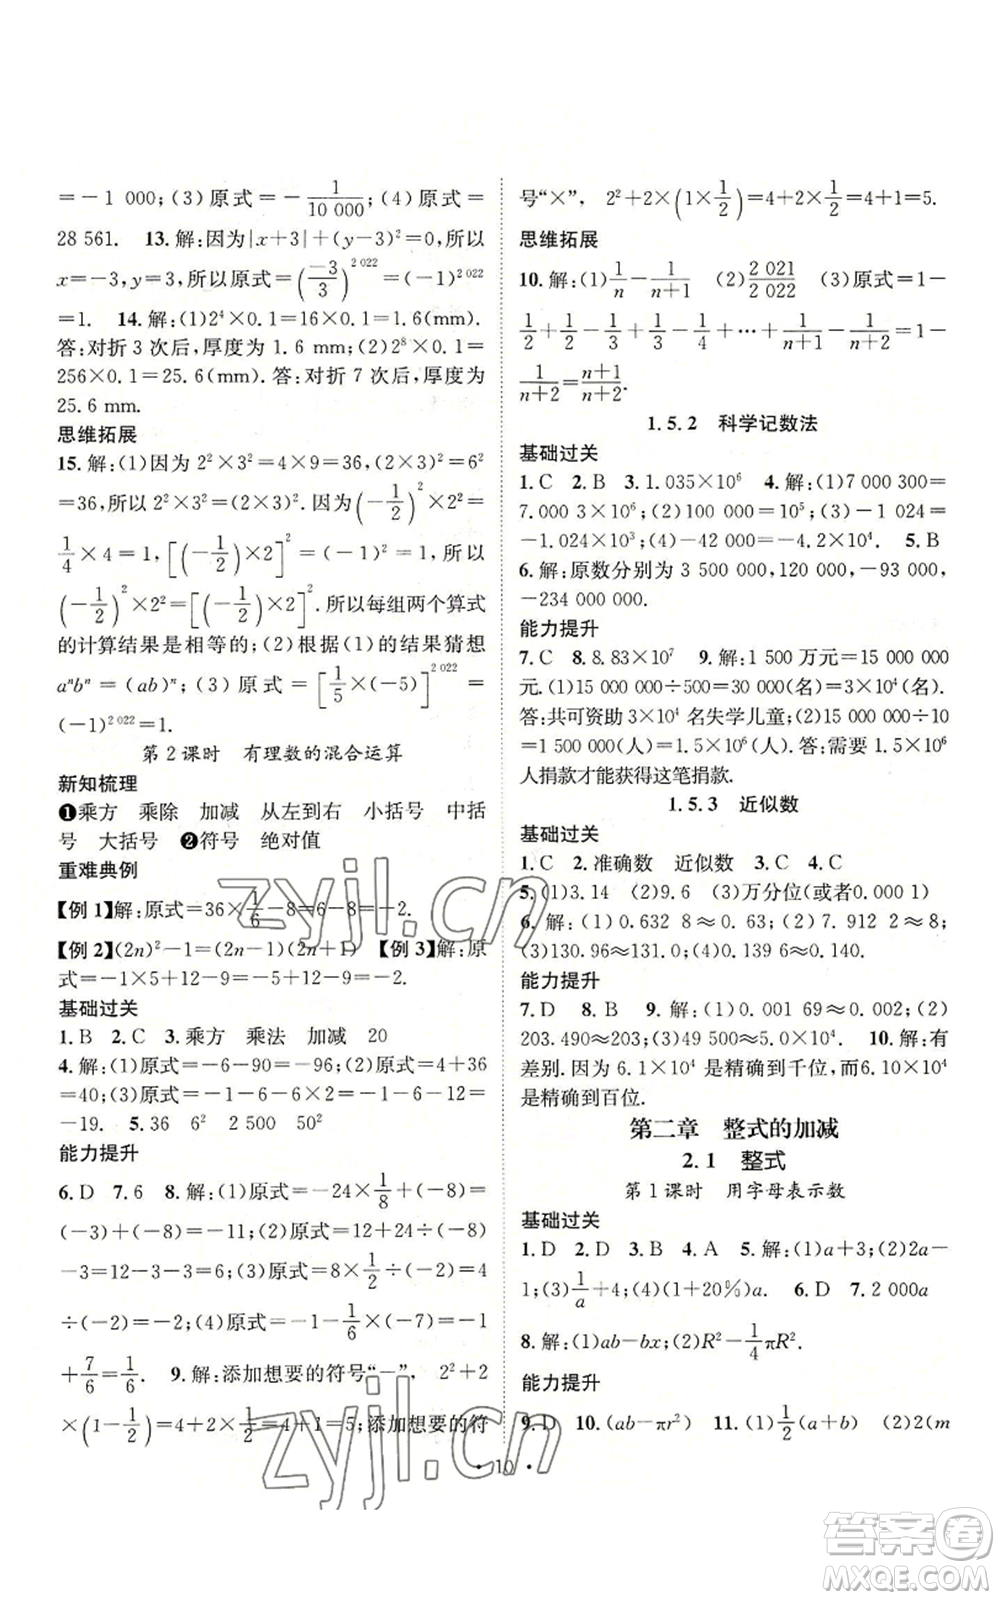 =－1 000;(3)原式=－1/10 000;(4)原式=
28 561. 13.解:因为|x+3|+(y－3)²=0,所以
x=－3,y=3,所以原式=(－3/3)^2 022=(－1)^2 022
=1. 14.解:(1)2⁴×0.1=16×0.1=1.6(mm).
答:对折3次后,厚度为1.6 mm;(2)2⁸×0.1=
256×0.1=25.6(mm).答:对折7次后,厚度为
25.6 mm.
思维拓展
15.解:(1)因为2²×3²=4×9=36,(2×3)²=6²
=36,所以2²×3²=(2×3)².因为(－1/2)²×2²=
1/4×4=1,[(－1/2)×2]²=(－1)²=1,所以
(－1/2)²×2²=[(－1/2)×2]².所以每组两个算式
的计算结果是相等的;(2)根据(1)的结果猜想
aⁿbⁿ=(ab)ⁿ;(3)原式=[1/5×(－5)]^2 022=
(－1)^2 022=1.
第2课时 有理数的混合运算
新知梳理
❶乘方 乘除 加减 从左到右 小括号 中括
号 大括号 ❷符号 绝对值
重难典例
【例1】解:原式=36×1/6－8=6－8=－2.
【例2】(2n)²－1=(2n－1)(2n+1) 【例3】解:原
式=－1×5+12－9=－5+12－9=－2.
基础过关
1.B 2.C 3.乘方 乘法 加减 20
4.解:(1)原式=－6－90=－96;(2)原式=4+36
=40;(3)原式=－1×6－12=－1－6－12=
－19. 5.36 6² 2 500 50²
能力提升
6.D 7.6 8.解:(1)原式=－24×1/8+(－8)=
(－3)+(－8)=－11;(2)原式=12+24÷(－8)
－3=12－3－3=6;(3)原式=8×1/2÷(－2)=4
÷(－2)=－2;(4)原式=－1－1/6×(－7)=－1
+7/6=1/6. 9.解:添加想要的符号“－”, 2²+2
×(1－1/2)=4+2×1/2=4+1=5;添加想要的符
号“×”, 2²+2×(1×1/2)=4+2×1/2=4+1=5.
思维拓展
10.解:(1)1/n－1/(n+1) (2)2 021/2 022 (3)原式=1－
1/2+1/2－1/3+1/3－1/4+…+1/(n+1)－1/(n+2)=1－
1/(n+2)=(n+1)/(n+2).
1.5.2 科学记数法
基础过关
1.C 2.B 3.1.035×10⁶ 4.解:(1)7 000 300=
7.000 3×10⁶;(2)100 000=10⁵;(3)－1 024=
－1.024×10³;(4)－42 000=－4.2×10⁴. 5.B
6.解:原数分别为3 500 000,120 000,－93 000,
－234 000 000.
能力提升
7.C 8.8.83×10⁷ 9.解:1 500万元=15 000 000
元.(1)15 000 000÷500=30 000(名)=3×10⁴(名).
答:共可资助3×10⁴名失学儿童;(2)15 000 000÷10
=1 500 000(人)=1.5×10⁶(人).答:需要1.5×10⁶
人捐款才能获得这笔捐款.
1.5.3 近似数
基础过关
1.C 2.准确数 近似数 3.C 4.C
5.(1)3.14 (2)9.6 (3)万分位(或者0.000 1)
6.解:(1)0.632 8≈0.63;(2)7.912 2≈8;
(3)130.96≈131.0;(4)0.139≈0.14.
能力提升
7.D 8.B 9.解:(1)0.001 69≈0.002;(2)
203.490≈203;(3)49 500≈5.0×10⁴. 10.解:有
差别.因为6.1×10⁴是精确到千位,而6.10×10⁴
是精确到百位.
第二章 整式的加减
2.1 整式
第1课时 用字母表示数
基础过关
1.D 2.D 3.B 4.A 5.解:(1)a+3;(2)2a－
1;(3)1/a+4;(4)(1+20%)a. 6.D 7.2 000a
8.解:(1)ab－bx;(2)R²－1/4πR².
能力提升
9.D 10.(ab－πr²) 11.(1)1/2(a+b) (2)2(m
· 10 ·
zyjl.cn
zyjl.cn
答案圈
MXQE.COM